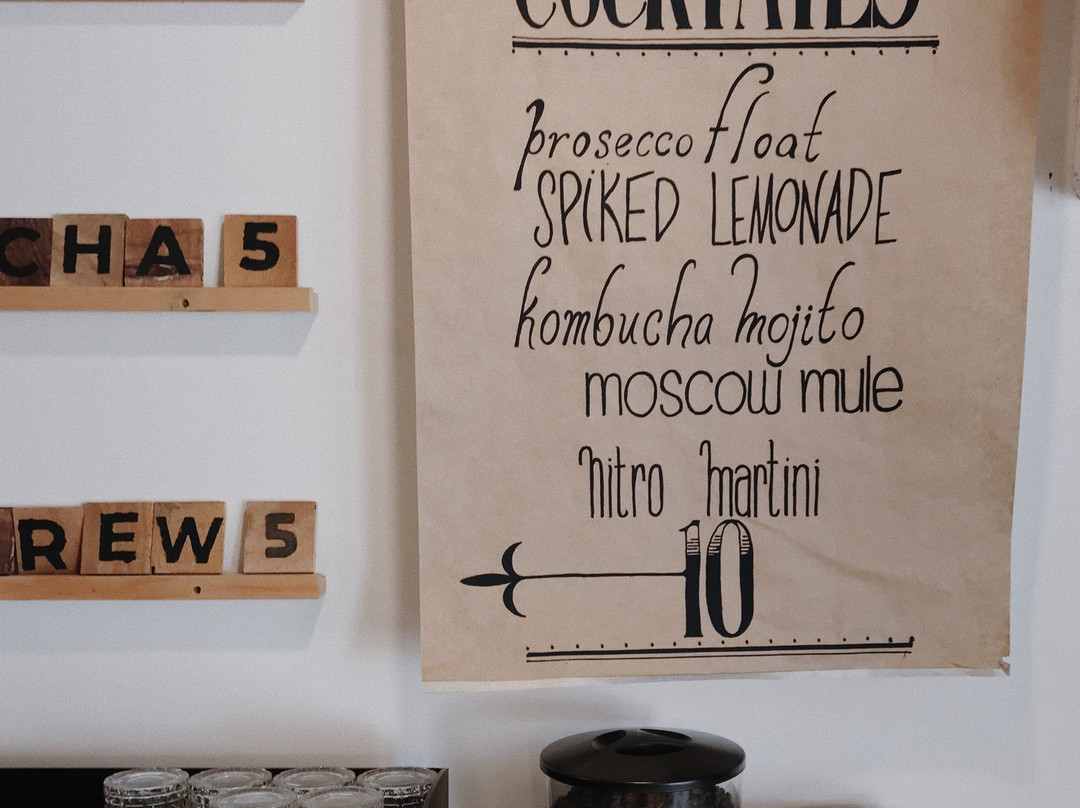 COCKTAILS
prosecco float
SPiKED LEMONADE
kombucha mojito
moscow mule
nitro martini
10
CHA 5
REW 5